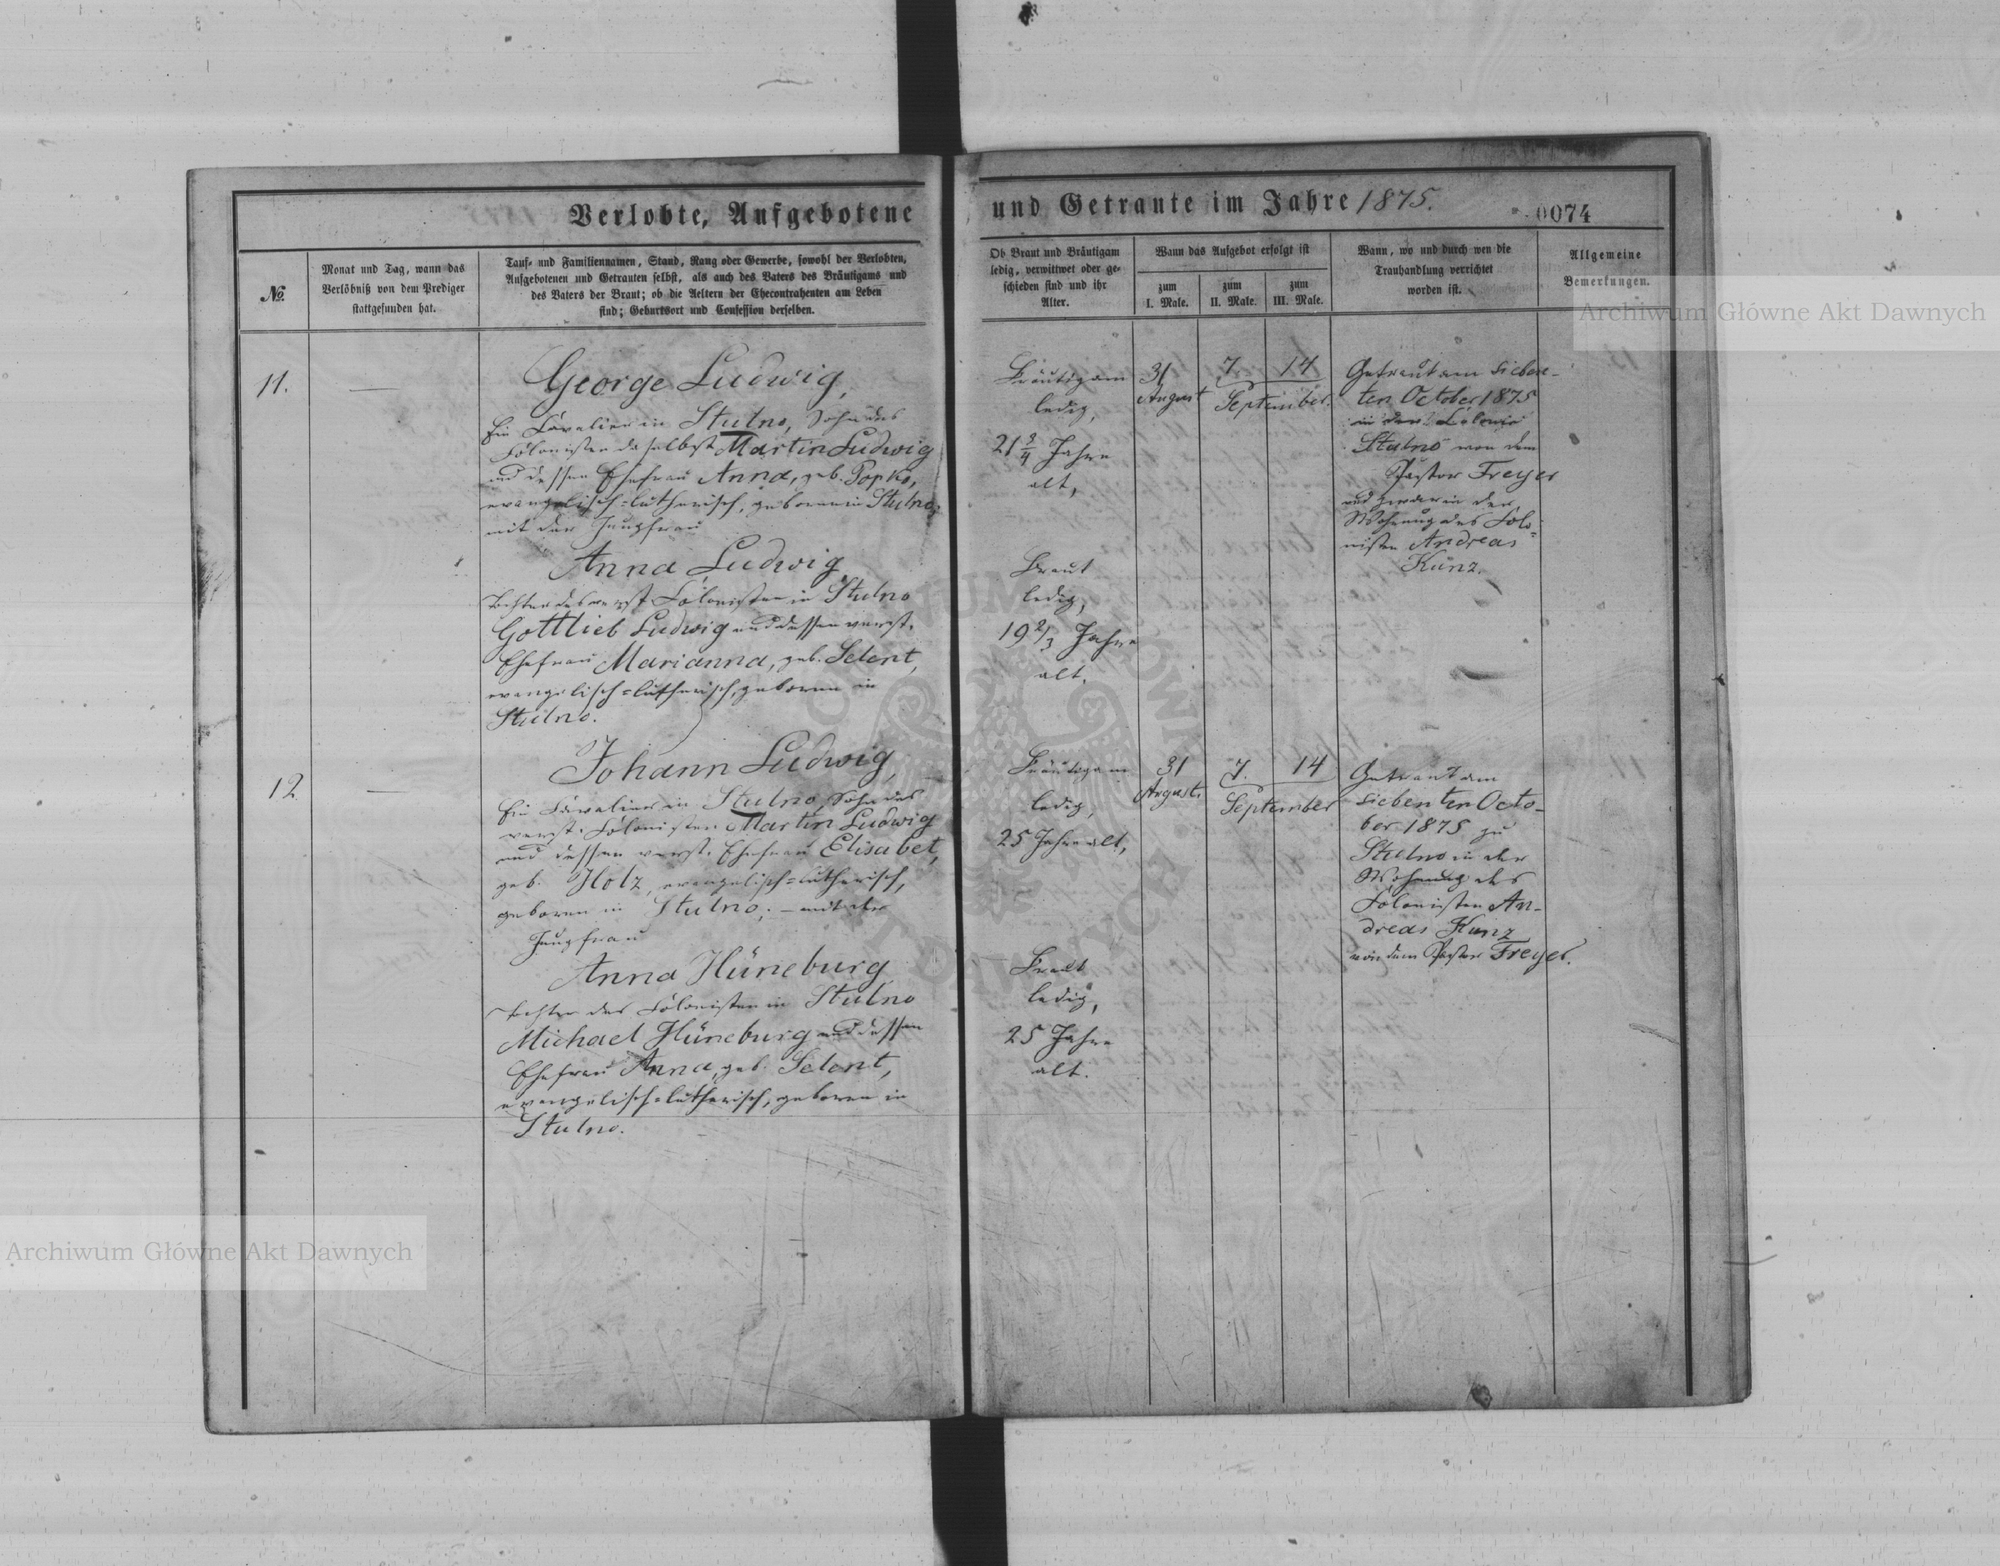 Verlobte, Aufgebotene
und Getraute im Jahre 1875.
0074
№
Monat und Tag, wann das
Verlöbniß von dem Prediger
stattgefunden hat.
Tauf- und Familiennamen, Stand, Rang oder Gewerbe, sowohl der Verlobten,
Aufgebotenen und Getrauten selbst, als auch des Vaters des Bräutigams und
des Vaters der Braut; ob die Aeltern der Ehecontrahenten am Leben
sind; Geburtsort und Confession derselben.
Ob Braut und Bräutigam
ledig, verwittwet oder ge-
schieden sind und ihr
Alter.
Wann das Aufgebot erfolgt ist
zum
I. Male.
zum
II. Male.
zum
III. Male.
Wann, wo und durch wen die
Trauhandlung verrichtet
worden ist.
Allgemeine
Bemerkungen.
11.
—
George Ludwig,
Ein in Stulno, Sohn des
Colonisten daselbst Martin Ludwig
und dessen Ehefrau Anna, geb. Popko,
evangelisch=lutherisch, geboren in Stulno,
mit der Jungfrau
Anna Ludwig
Tochter des verst. Colonisten in Stulno
Gottlieb Ludwig und dessen verst.
Ehefrau Marianna, geb. Selent,
evangelisch=lutherisch, geboren in
Stulno.
Bräutigam
ledig,
21 3/4 Jahre
alt,
Braut
ledig,
19 2/3 Jahre
alt.
31
August
7. 14
September.
Getraut am sieben-
ten October 1875
in der Colonie
Stulno von dem
Pastor Freyer
und zwar in der
Wohnung des Colo-
nisten Andreas
Kunz.
12
—
Johann Ludwig,
Ein in Stulno, Sohn des
verst. Colonisten Martin Ludwig
und dessen verst. Ehefrau Elisabet,
geb. Holz, evangelisch=lutherisch,
geboren in Stulno; – mit der
Jungfrau
Anna Hüneburg
Tochter des Colonisten in Stulno
Michael Hüneburg und dessen
Ehefrau Anna, geb. Selent,
evangelisch=lutherisch, geboren in
Stulno.
Bräutigam
ledig,
25 Jahre alt,
Braut
ledig,
25 Jahre
alt.
31
August.
7. 14
September
Getraut am
siebenten Octo-
ber 1875 zu
Stulno in der
Wohnung des
Colonisten An-
dreas Kunz
von dem Pastor Freyer.
Archiwum Główne Akt Dawnych
Archiwum Główne Akt Dawnych